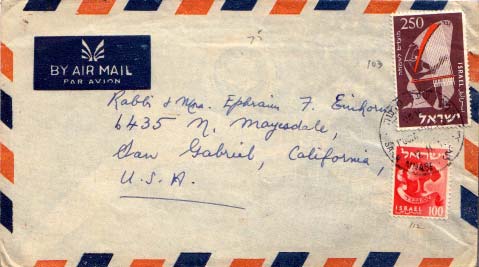 250
BY AIR MAIL
PAR AVION
103
ISRAEL
ישראל
Rabbi & Mrs. Ephraim F. Einhorn
6435 N. Mayesdale,
San Gabriel, California,
U.S.A.
ישראל
ISRAEL 100